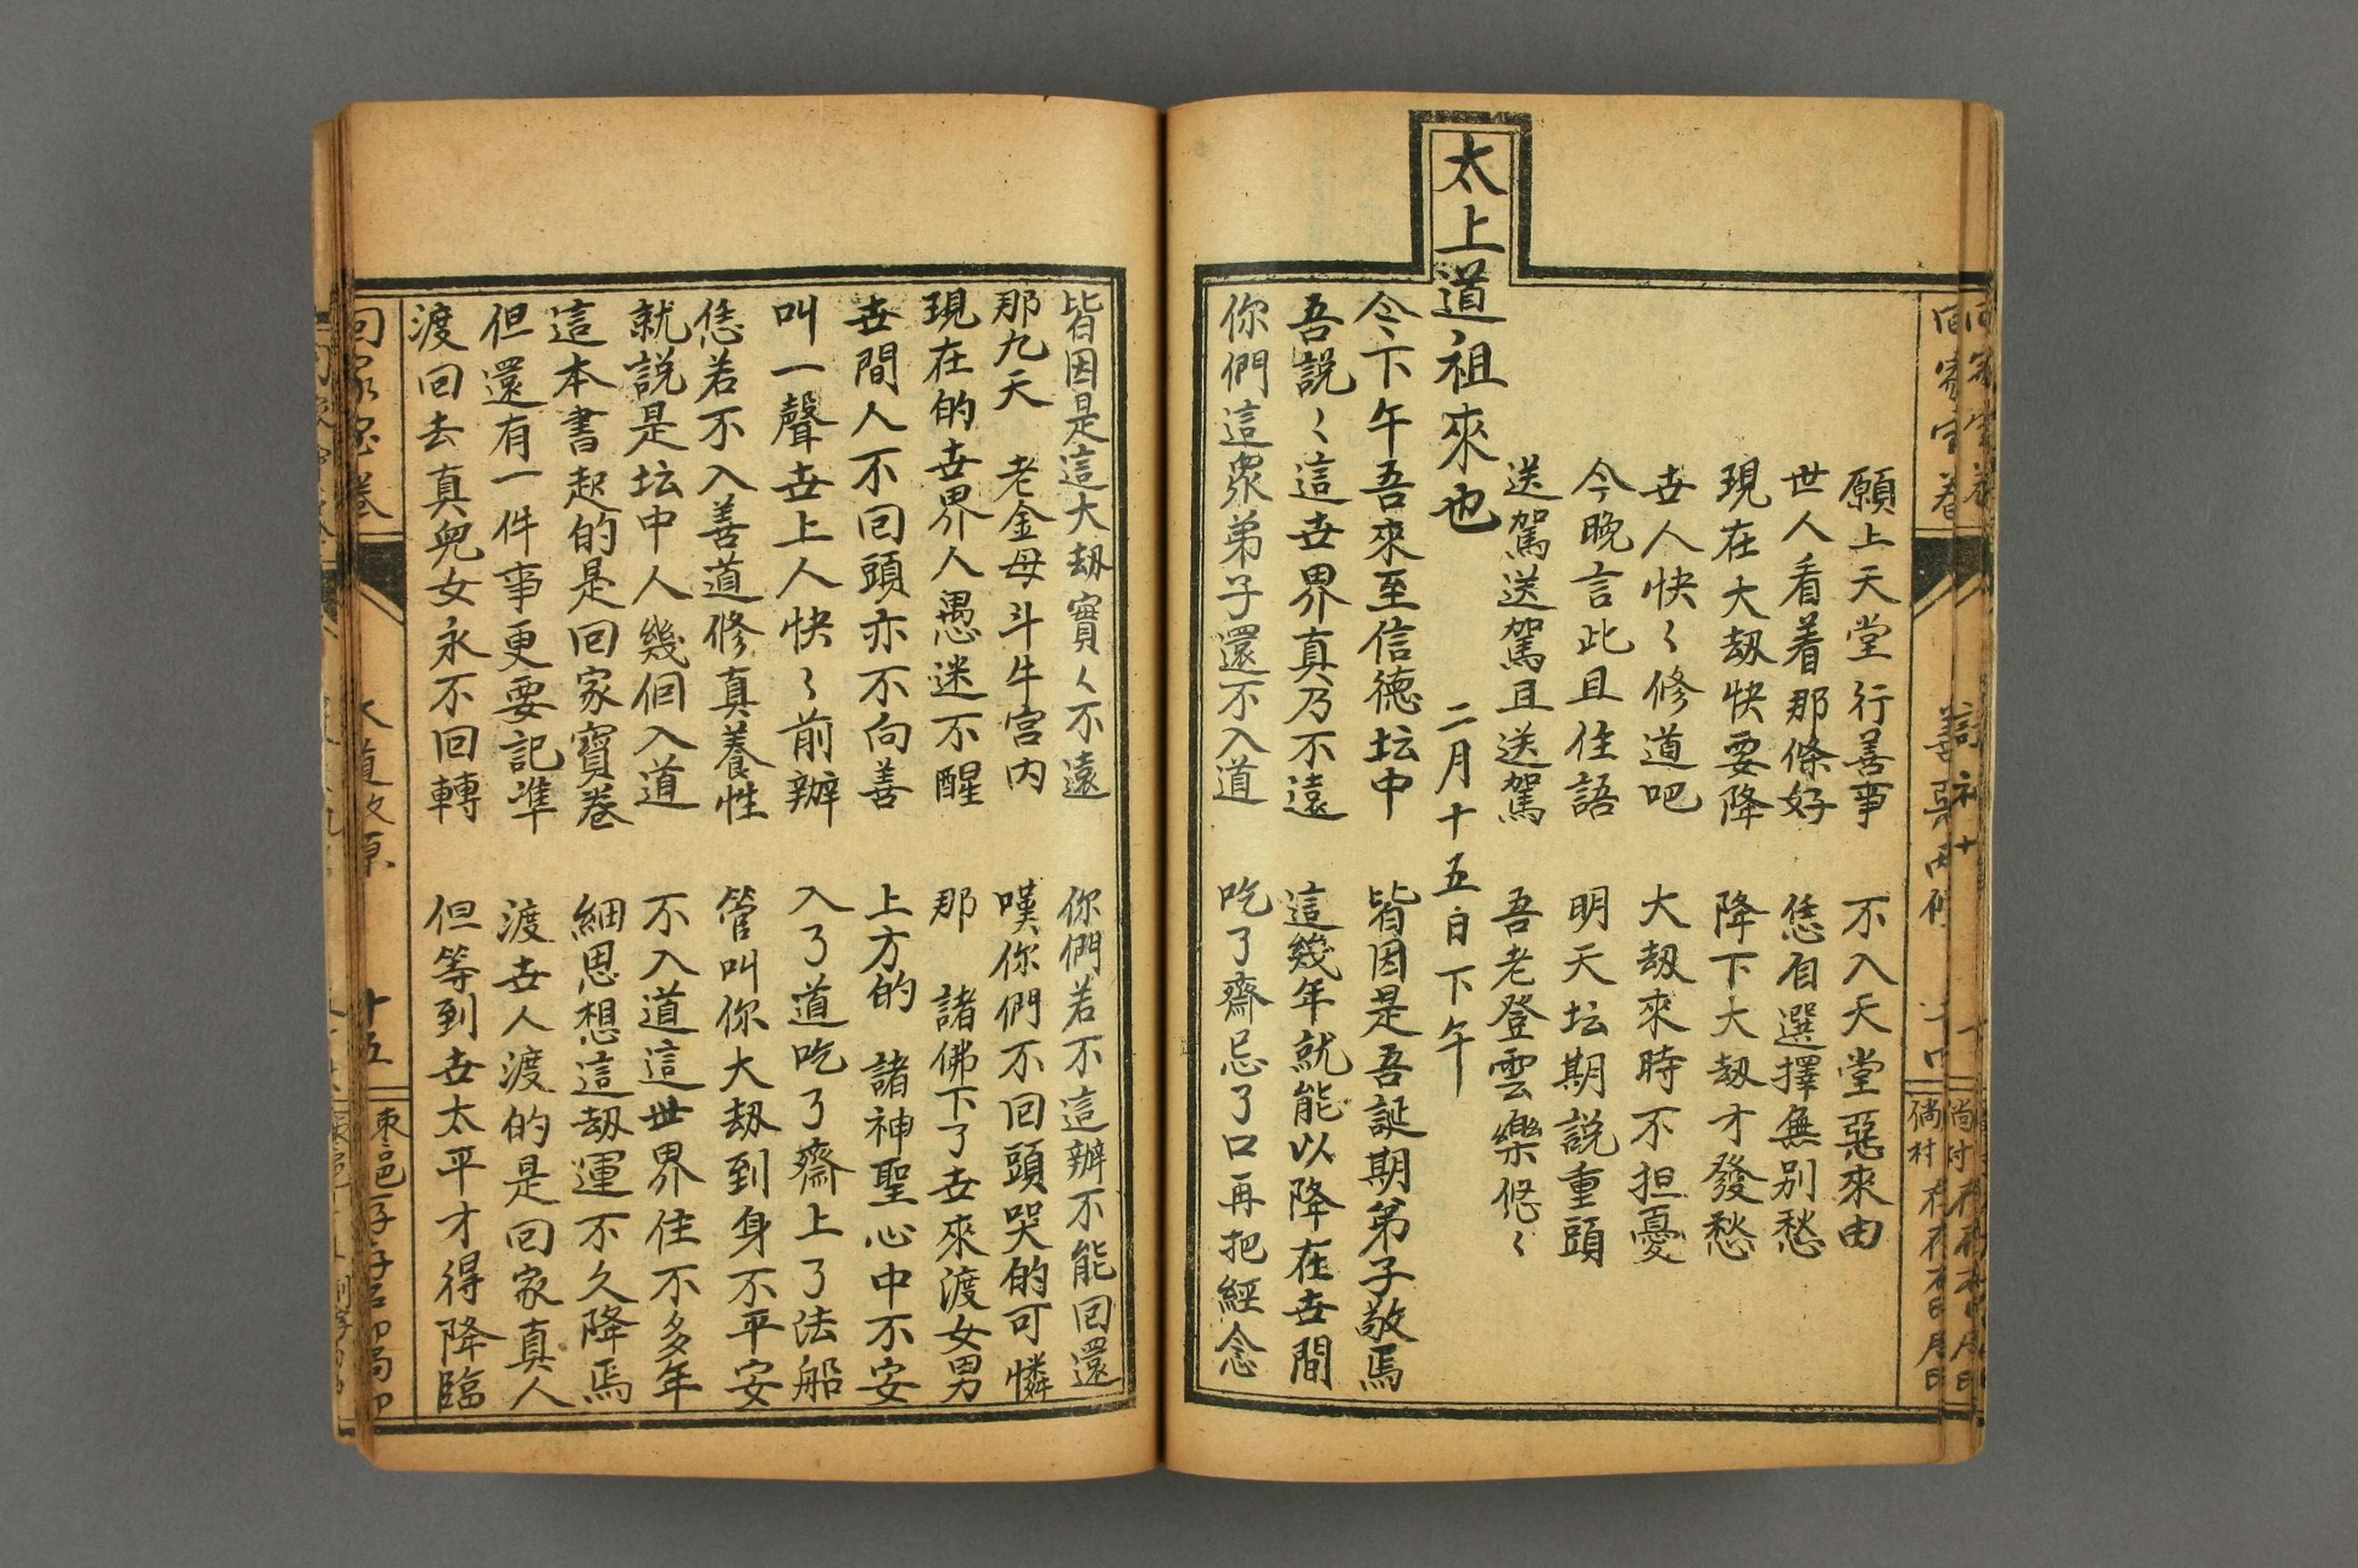 願上天堂行善事　不入天堂惡來由
世人看着那條好　恁自選擇無别愁
現在大刼快要降　降下大刼才發愁
世人快〻修道吧　大刼來時不担憂
今晚言此且住語　明天坛期説重頭
送駕送駕且送駕　吾老登雲樂悠〻
太上道〻祖來也　二月十五日下午
今〻下午吾來至信德坛中　皆因是吾誕期弟子敬焉
吾説〻這世界真乃不遠　這幾年就能以降在世間
你們這眾弟子還不入道　吃了齋忌了口再把經念
皆因是這大刼實〻不遠　你們若不這辦不能回還
那九天　老金母斗牛宫内　嘆你們不回頭哭的可憐
現在的世界人愚迷不醒　那　諸佛下了世來渡女男
世間人不回頭亦不向善　上方的　諸神聖心中不安
叫一聲世上人快〻前辦　入了道吃了齋上了法船
恁若不入善道修真養性　管叫你大刼到身不平安
就説是坛中人幾個入道　不入道這世界住不多年
這本書起的是回家寶卷　細思想這刼運不久降焉
但還有一件事更要記準　渡世人渡的是回家真人
渡回去真兒女永不回轉　但等到世太平才得降臨
十五